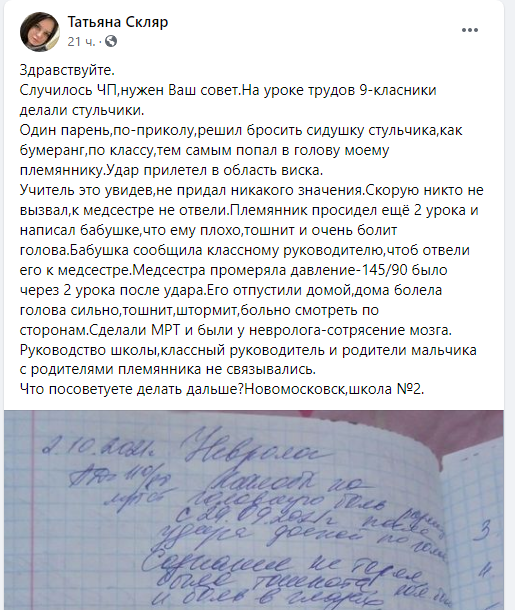 Татьяна Скляр
21 ч. ·
Здравствуйте.
Случилось ЧП,нужен Ваш совет.На уроке трудов 9-класники
делали стульчики.
Один парень,по-приколу,решил бросить сидушку стульчика,как
бумеранг,по классу,тем самым попал в голову моему
племяннику.Удар прилетел в область виска.
Учитель это увидев,не придал никакого значения.Скорую никто не
вызвал,к медсестре не отвели.Племянник просидел ещё 2 урока и
написал бабушке,что ему плохо,тошнит и очень болит
голова.Бабушка сообщила классному руководителю,чтоб отвели
его к медсестре.Медсестра промеряла давление-145/90 было
через 2 урока после удара.Его отпустили домой,дома болела
голова сильно,тошнит,штормит,больно смотреть по
сторонам.Сделали МРТ и были у невролога-сотрясение мозга.
Руководство школы,классный руководитель и родители мальчика
с родителями племянника не связывались.
Что посоветуете делать дальше?Новомосковск,школа №2.
2.10.2021г. Невролог
жалобы на
головную боль
с 29.09.2021г после
удара доской по голове
Сознание не терял
была тошнота
и боль в глазах
3